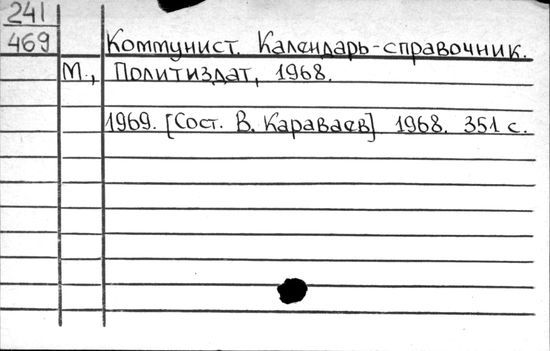 241
469 Коммунист. Календарь-справочник.
М., Политиздат, 1968.
1969. [Сост. В. Караваев] 1968. 351 с.